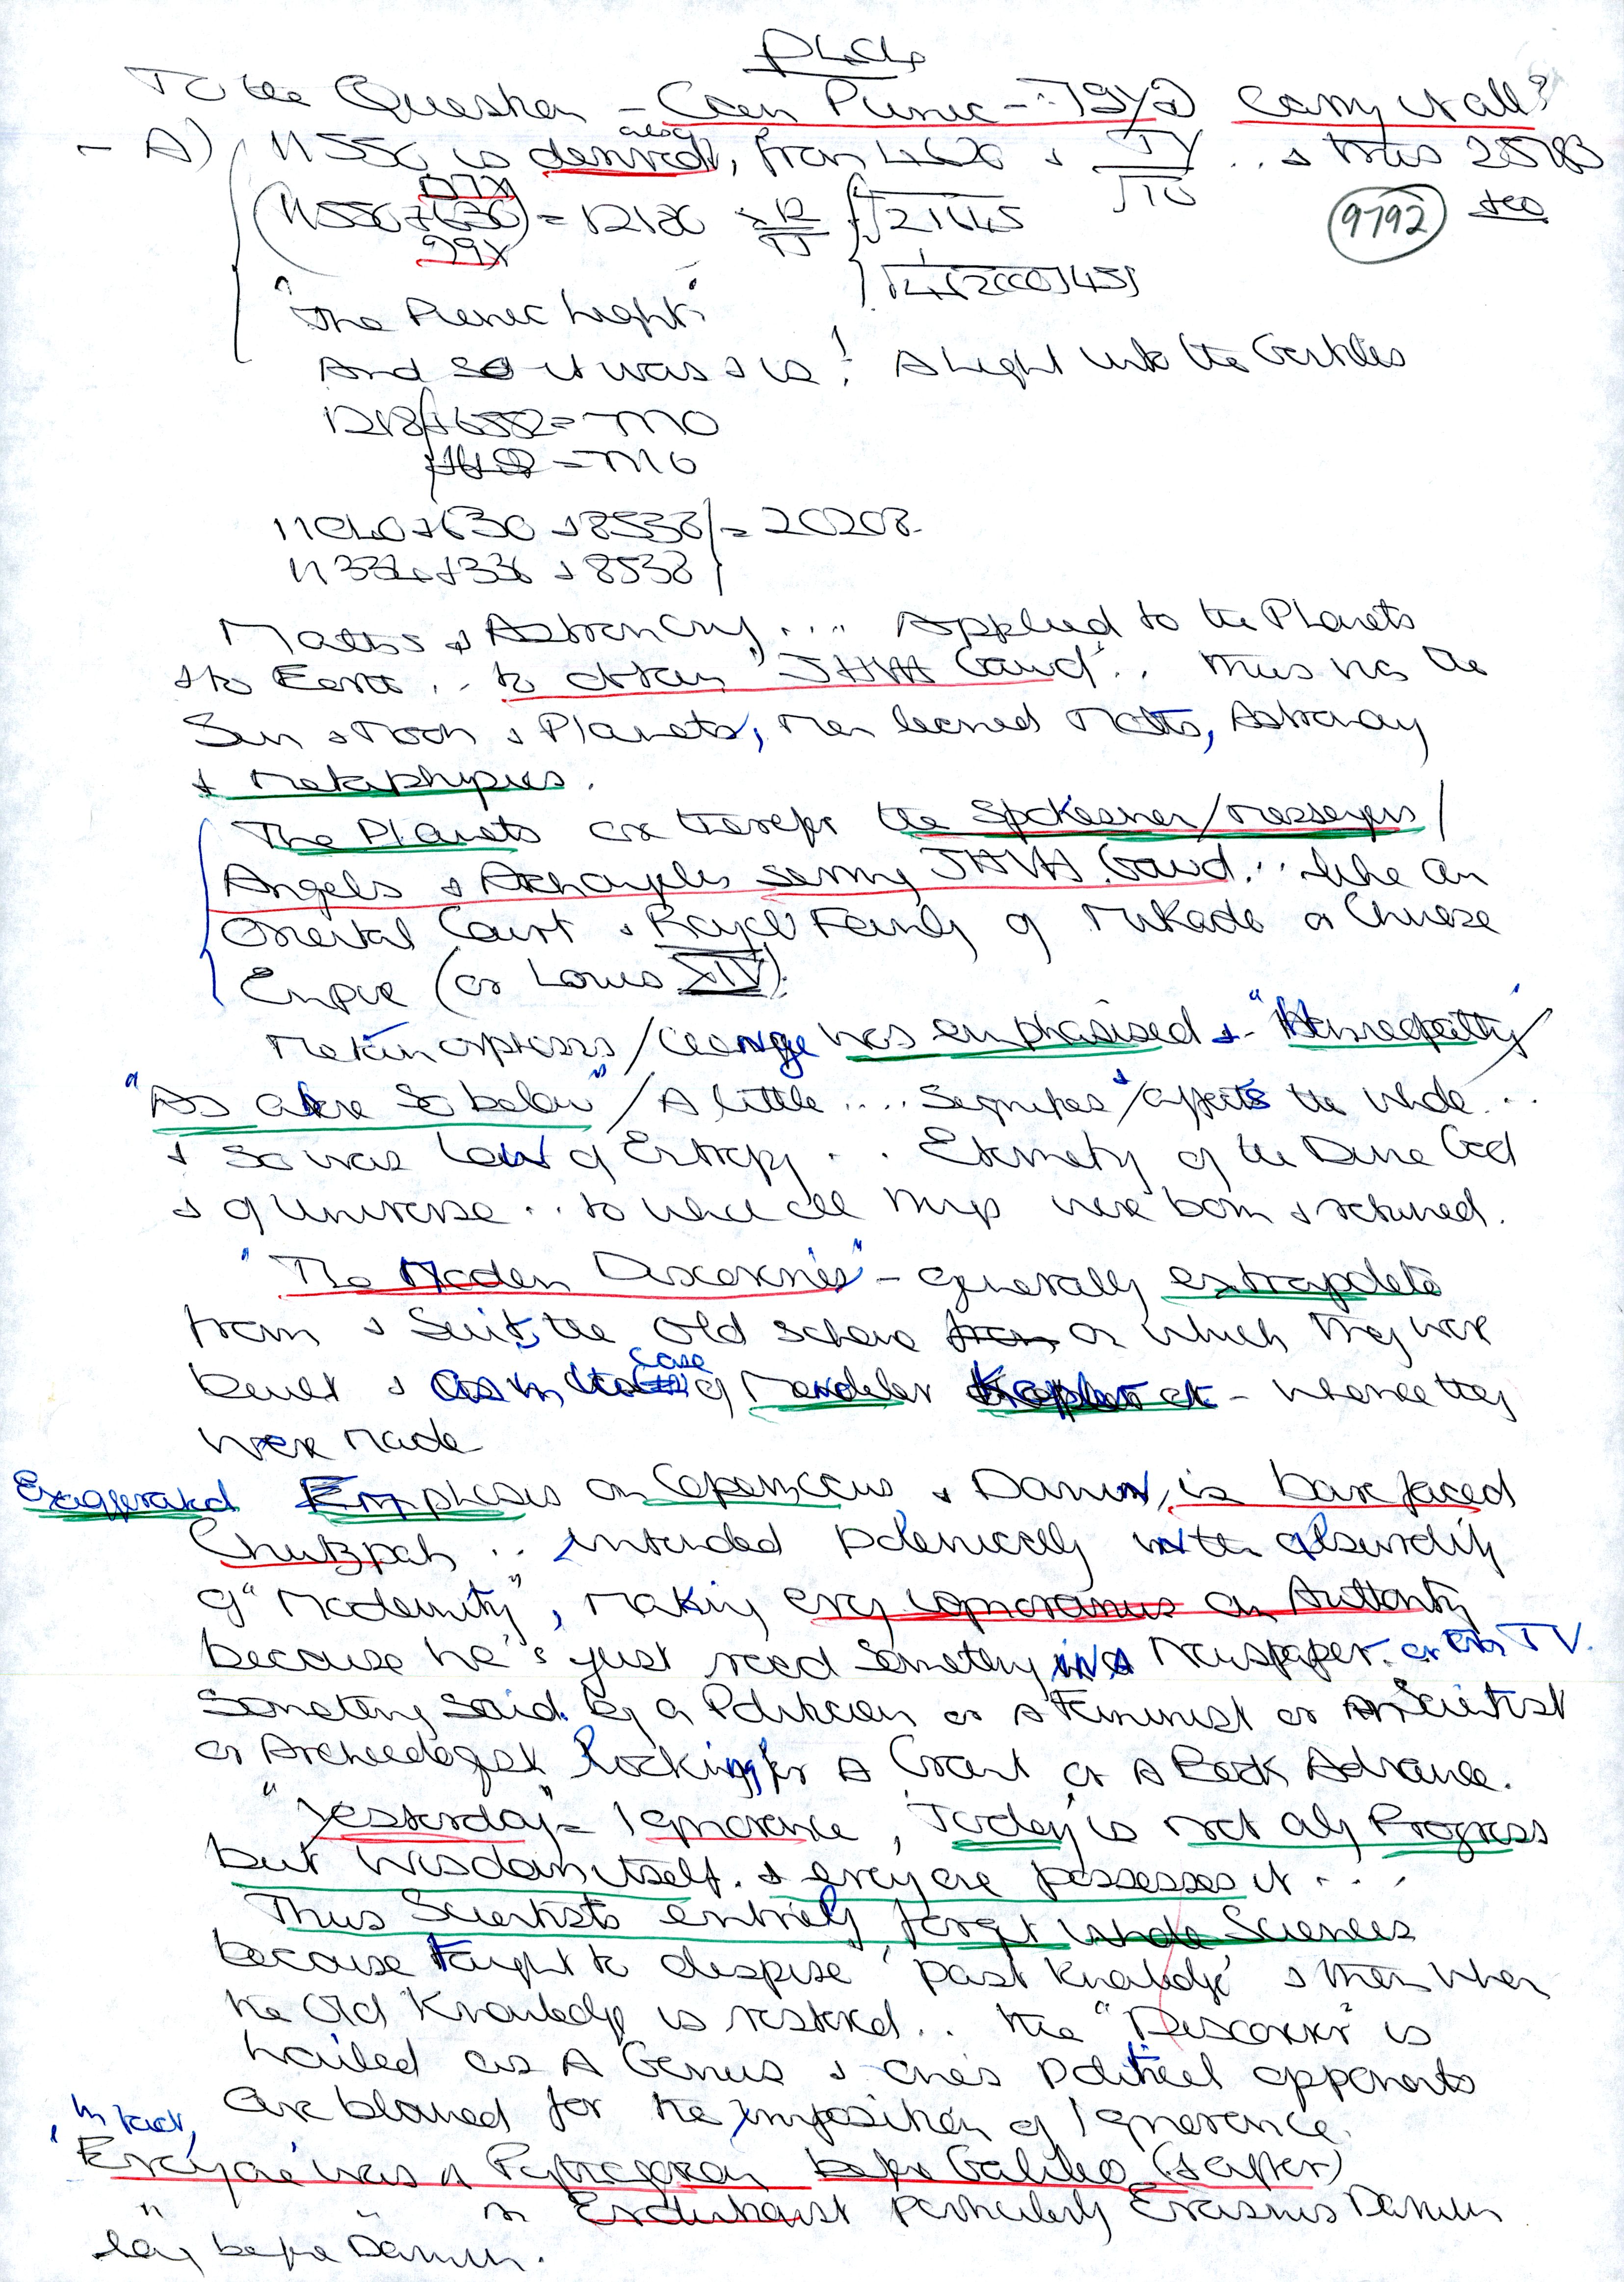 To the Question - Can Punic - carry it all?
- A) 11550 is also derived, from & ... & thus
9792
= 12180
√21645
"The Punic Light"
And so it was & is! A Light unto the Gentiles
11040 + 630 + 8538 = 20208
11334 + 336 + 8538
Maths & Astronomy .... Applied to the Planets
& to Earth .. to obtain "JHVH Gawd" .. Thus via the
Sun & Moon & Planets, Men learned Maths, Astronomy
& Metaphysics.
The Planets are therefore the Spokesmen/Messengers/
Angels & Archangels serving JHVH Gawd... like an
Oriental Court & Royal Family of Mikado or Chinese
Empire (or Louis XIV).
Metamorphosis/change was emphasised &
"As above So below"/A little .... Signifies/& affects the whole...
& so was Law of Entropy ... Eternity of the Divine God
& of Universe .. to which all things were born & returned.
"The Modern Discoveries" - generally extrapolate
from & Suit, the Old scheme from on which they were
built & as in case of Mendeleev Kepler etc - whence they
were made
Exaggerated Emphasis on Copernicus & Darwin, is bare faced
Chutzpah .. intended polemically with absurdity
of "Modernity", making every ignoramus an Authority
because he's just read Something in a Newspaper. or on TV.
Something Said by a Politician or a Feminist or a Scientist
or Archeologist looking for a Grant or a Book Advance.
"Yesterday" = Ignorance, Today is not only Progress
but Wisdom itself. & everyone possesses it...
Thus Scientists entirely forget whole Sciences
because taught to despise 'past Knowledge' & then when
the Old Knowledge is restored .. the "Discoverer" is
hailed as a Genius & one's political opponents
are blamed for the imposition of Ignorance.
In fact,
Everyone was a Pythagorean before Galileo (& after)
" " an Evolutionist particularly Erasmus Darwin
long before Darwin.